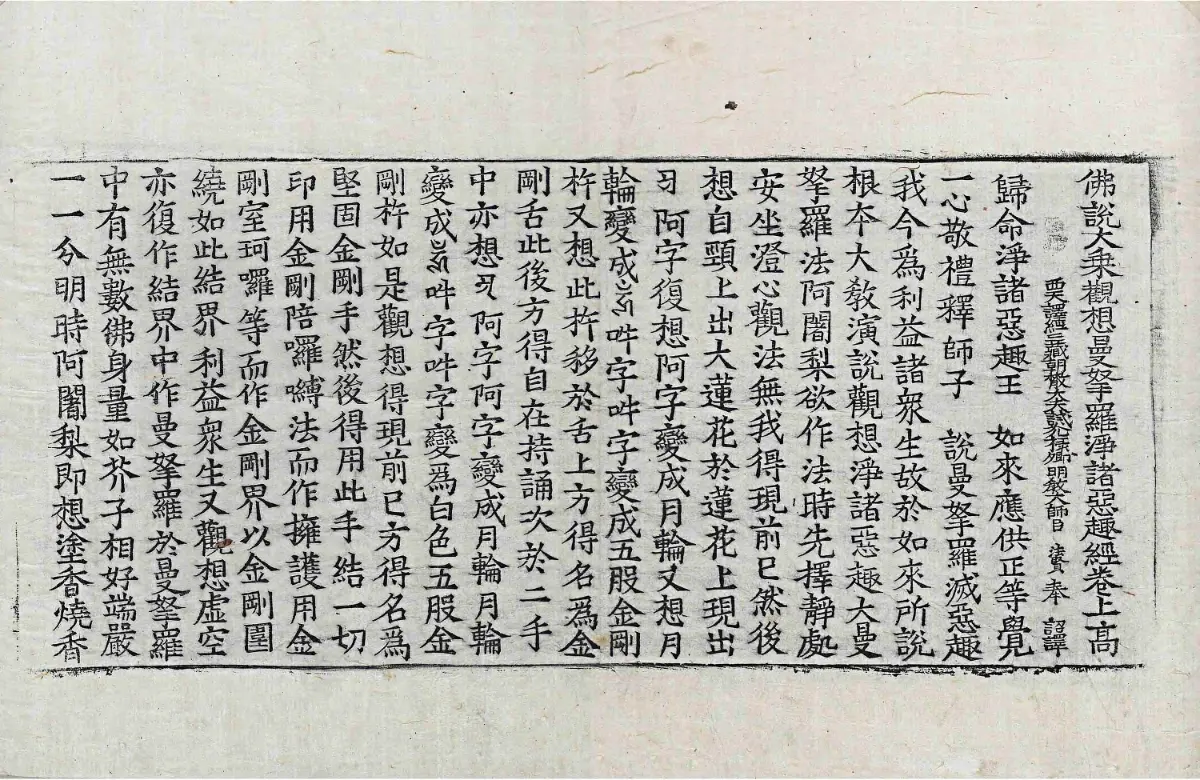 佛說大乗觀想曼拏羅淨諸惡趣經卷上 高
西天譯經三藏朝散大夫試鴻臚少卿明教大師臣 法賢 奉 詔譯
歸命淨諸惡趣王 如來應供正等覺
一心敬禮釋師子 說曼拏羅滅惡趣
我今爲利益諸衆生故於如來所說
根本大敎演說觀想淨諸惡趣大曼
拏羅法阿闍梨欲作法時先擇靜處
安坐澄心觀法無我得現前已然後
想自頸上出大蓮花於蓮花上現出
阿字復想阿字變成月輪又想月
輪變成吽字吽字變成五股金剛
杵又想此杵移於舌上方得名爲金
剛舌此後方得自在持誦次於二手
中亦想阿字阿字變成月輪月輪
變成吽字吽字變爲白色五股金
剛杵如是觀想得現前已方得名爲
堅固金剛手然後得用此手結一切
印用金剛陪囉嚩法而作擁護用金
剛室珂囉等而作金剛界以金剛圍
繞如此結界利益衆生又觀想虛空
亦復作結界中作曼拏羅於曼拏羅
中有無數佛身量如芥子相好端嚴
一一分明時阿闍梨即想塗香燒香